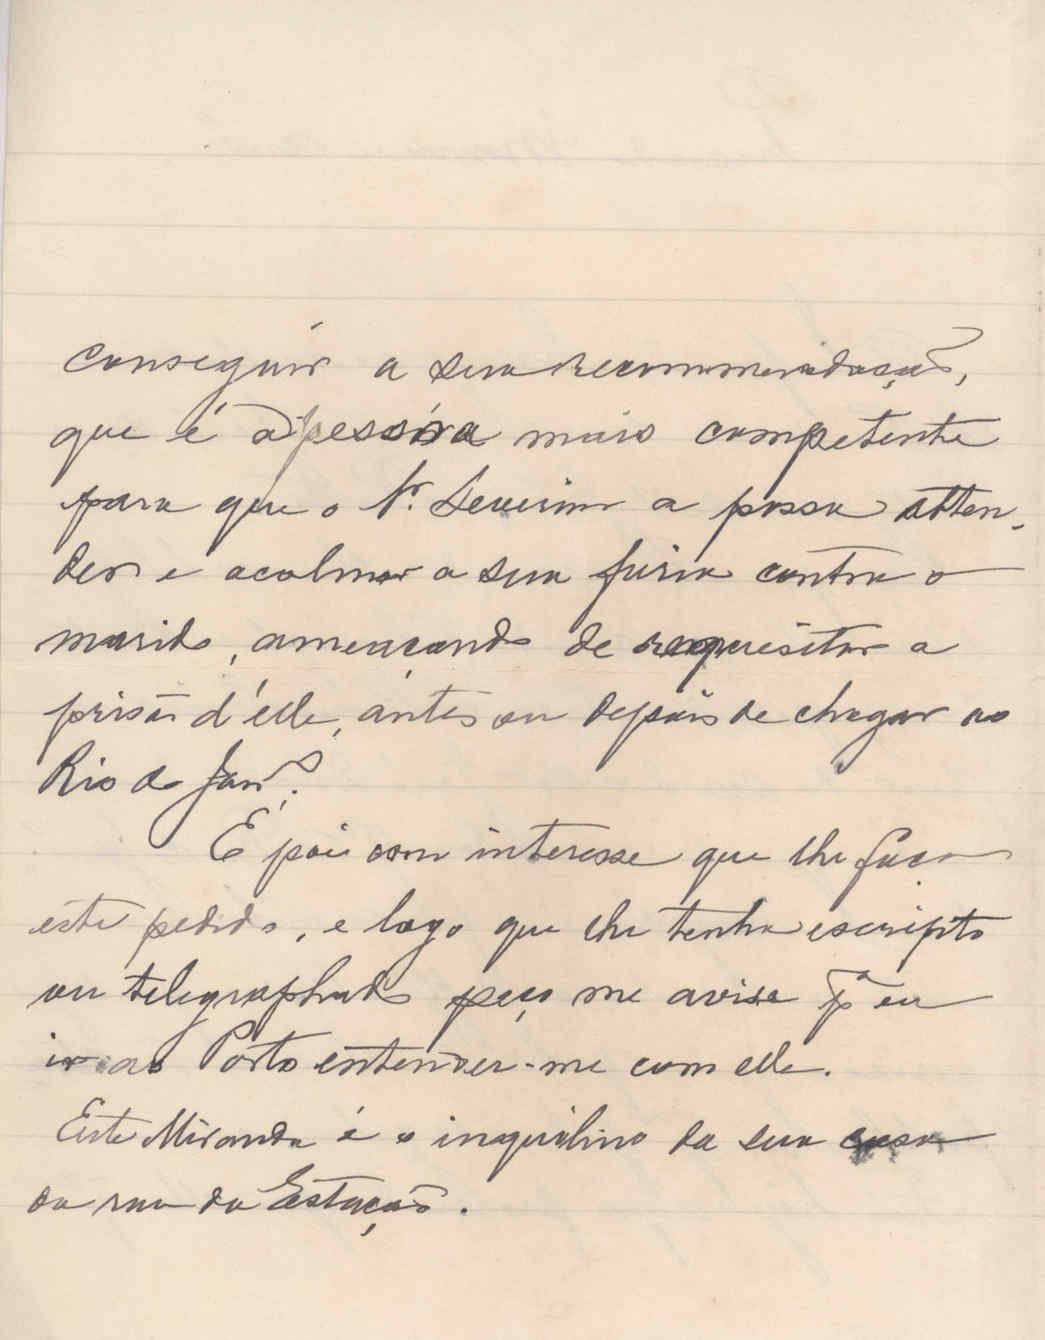 conseguir a sua recommendação,
que é a pessôa mais competente
para que o Sr. Severino a possa atten-
der e acalmar a sua furia contra o
marido, ameaçando de requisitar a
prisão d'élle, ántes ou depois de chegar ao
Rio de Janr.º
É pois com interesse que lhe faço
este pedido, e logo que lhe tenha escripto
ou telegraphado peço me avise pª eu
ir ao Porto entender-me com elle.
Este Miranda é o inquilino da sua casa
da rua da Estação.